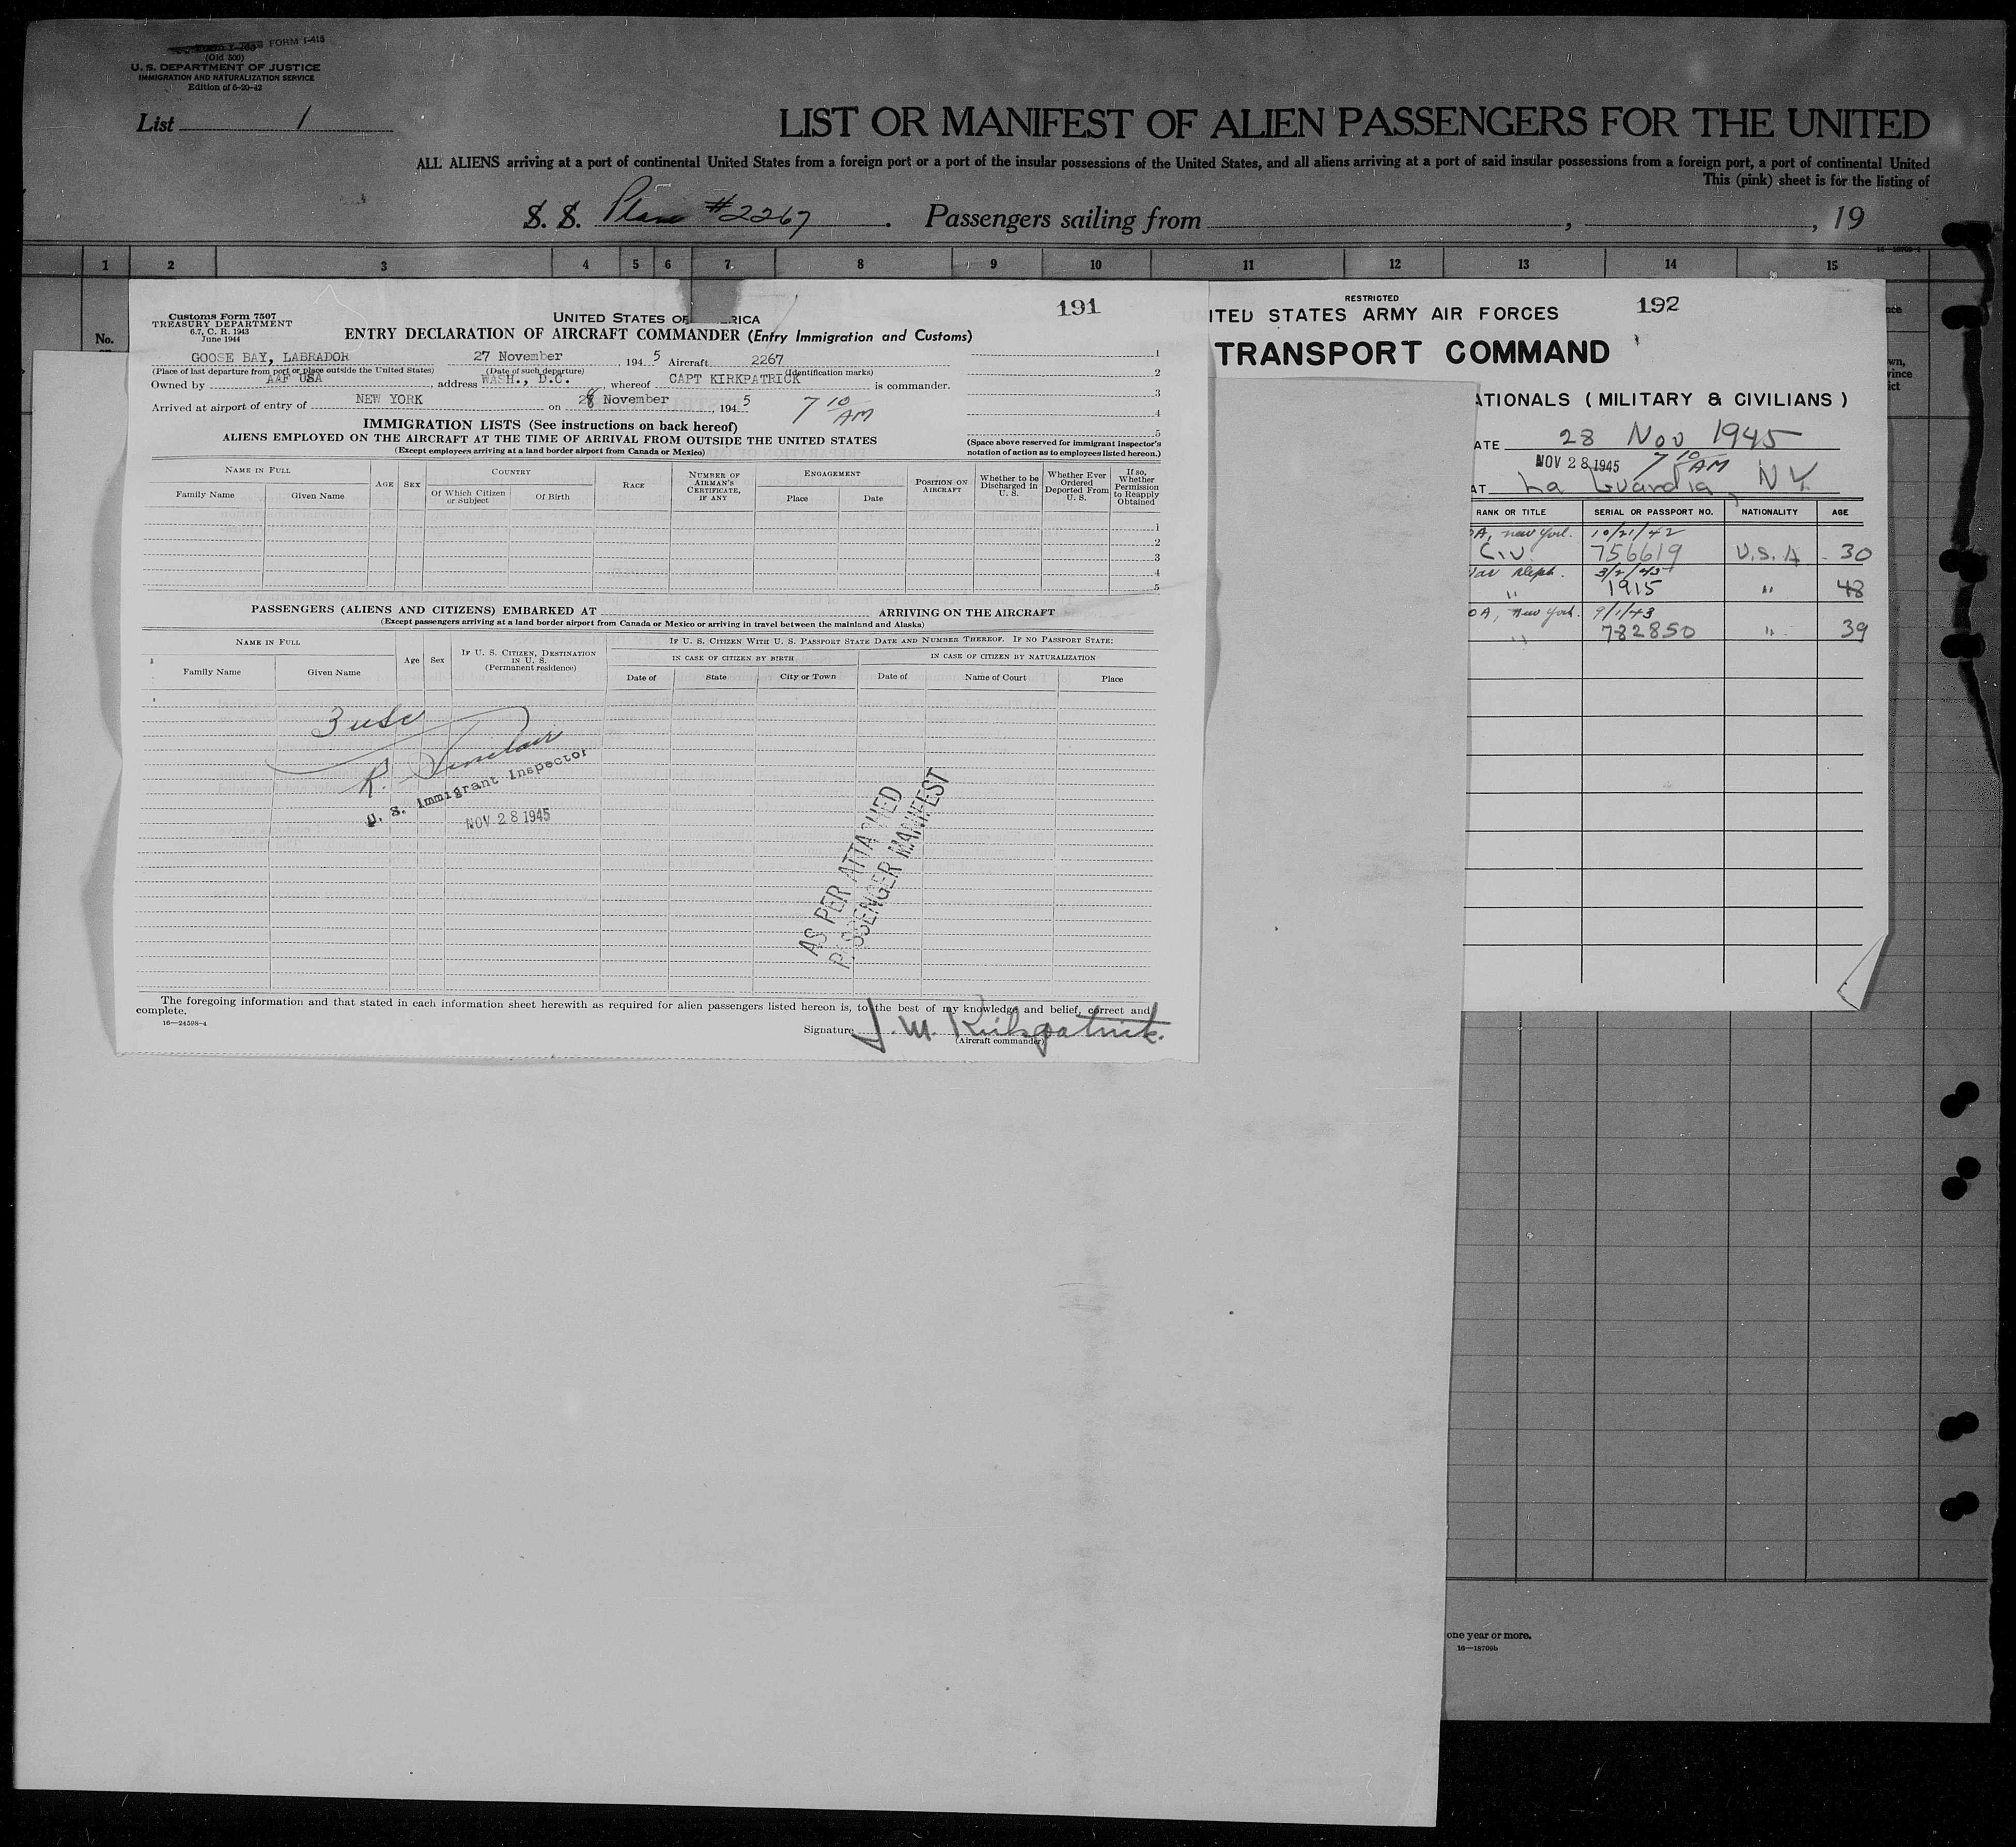 FORM I-415
(Old 500)
U. S. DEPARTMENT OF JUSTICE
IMMIGRATION AND NATURALIZATION SERVICE
Edition of 6-20-42
List 1
LIST OR MANIFEST OF ALIEN PASSENGERS FOR THE UNITED
ALL ALIENS arriving at a port of continental United States from a foreign port or a port of the insular possessions of the United States, and all aliens arriving at a port of said insular possessions from a foreign port, a port of continental United
This (pink) sheet is for the listing of
S. S. Plane #2267. Passengers sailing from , , 19
1 2 3 4 5 6 7 8 9 10 11 12 13 14 15
No.
191
Customs Form 7507
TREASURY DEPARTMENT
6.7, C. R. 1943
June 1944
UNITED STATES OF RICA
ENTRY DECLARATION OF AIRCRAFT COMMANDER (Entry Immigration and Customs)
GOOSE BAY, LABRADOR 27 November, 194 5 Aircraft 2267
(Place of last departure from port or place outside the United States) (Date of such departure) (Identification marks)
Owned by AAF USA, address WASH., D.C., whereof CAPT KIRKPATRICK is commander.
Arrived at airport of entry of NEW YORK on 28 November, 194 5 7 10 AM
1
2
3
4
5
IMMIGRATION LISTS (See instructions on back hereof)
ALIENS EMPLOYED ON THE AIRCRAFT AT THE TIME OF ARRIVAL FROM OUTSIDE THE UNITED STATES
(Except employees arriving at a land border airport from Canada or Mexico)
(Space above reserved for immigrant inspector's
notation of action as to employees listed hereon.)
NAME IN FULL
Family Name Given Name
AGE SEX
COUNTRY
Of Which Citizen or Subject Of Birth
RACE
NUMBER OF AIRMAN'S CERTIFICATE, IF ANY
ENGAGEMENT
Place Date
POSITION ON AIRCRAFT
Whether to be Discharged in U. S.
Whether Ever Ordered Deported From U. S.
If so, Whether Permission to Reapply Obtained
1
2
3
4
5
PASSENGERS (ALIENS AND CITIZENS) EMBARKED AT ARRIVING ON THE AIRCRAFT
(Except passengers arriving at a land border airport from Canada or Mexico or arriving in travel between the mainland and Alaska)
NAME IN FULL
Family Name Given Name
Age Sex
IF U. S. CITIZEN, DESTINATION IN U. S. (Permanent residence)
IF U. S. CITIZEN WITH U. S. PASSPORT STATE DATE AND NUMBER THEREOF. IF NO PASSPORT STATE:
IN CASE OF CITIZEN BY BIRTH IN CASE OF CITIZEN BY NATURALIZATION
Date of State City or Town Date of Name of Court Place
3 usc
R. Sinclair
U. S. Immigrant Inspector
NOV 28 1945
AS PER ATTACHED
PASSENGER MANIFEST
The foregoing information and that stated in each information sheet herewith as required for alien passengers listed hereon is, to the best of my knowledge and belief, correct and
complete.
16—24598-4
Signature J. M. Kirkpatrick.
(Aircraft commander)
RESTRICTED
192
ITED STATES ARMY AIR FORCES
TRANSPORT COMMAND
ATIONALS ( MILITARY & CIVILIANS )
ATE 28 Nov 1945
NOV 28 1945 7 10 AM
AT La Guardia, NY
RANK OR TITLE SERIAL OR PASSPORT NO. NATIONALITY AGE
A, new york. 10/21/42
Civ. 756619 U.S.A 30
3/2/45
" 1915 " 48
A, new york. 9/1/43
" 782850 " 39
nce
wn,
vince
ict
one year or more.
16—18706b